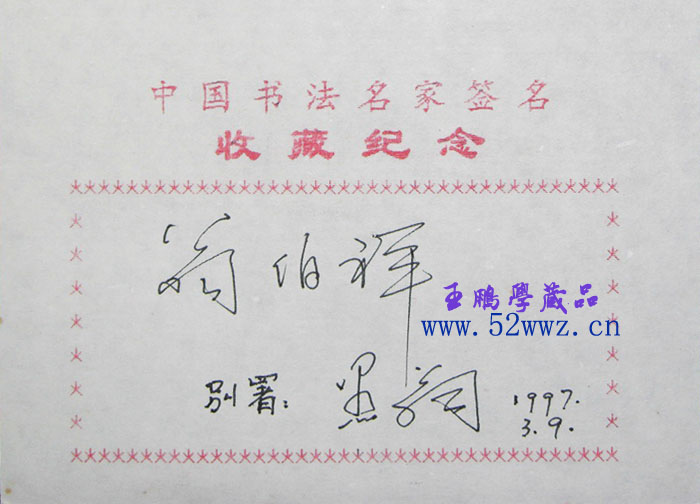 中国书法名家签名
收藏纪念
翁伯祥
王鹏學藏品
www.52wwz.cn
别署:
1997.
3.9.